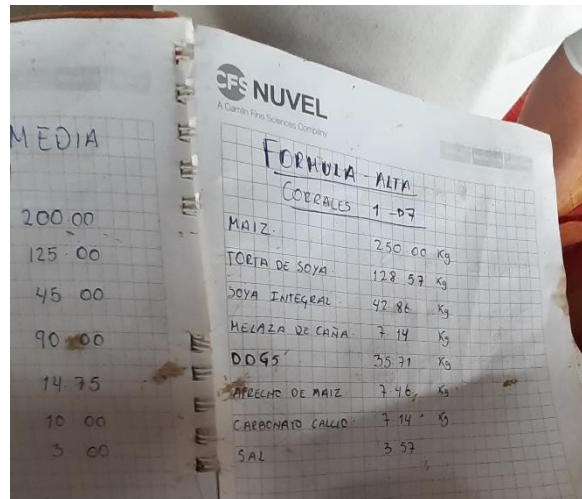 MEDIA
200.00
125.00
45 00
90 00
14.75
10 00
3 00
CFS NUVEL
A Camlin Fine Sciences Company
FORMULA ALTA
CORRALES 1 -D7
MAIZ. 250.00 Kg
TORTA DE SOYA. 128.57 Kg
SOYA INTEGRAL 42.86 Kg
MELAZA DE CAÑA. 7.14 Kg
DDGS 35.71 Kg
AFRECHO DE MAIZ 7.46 Kg
CARBONATO CALCIO. 7.14 Kg
SAL 3.57